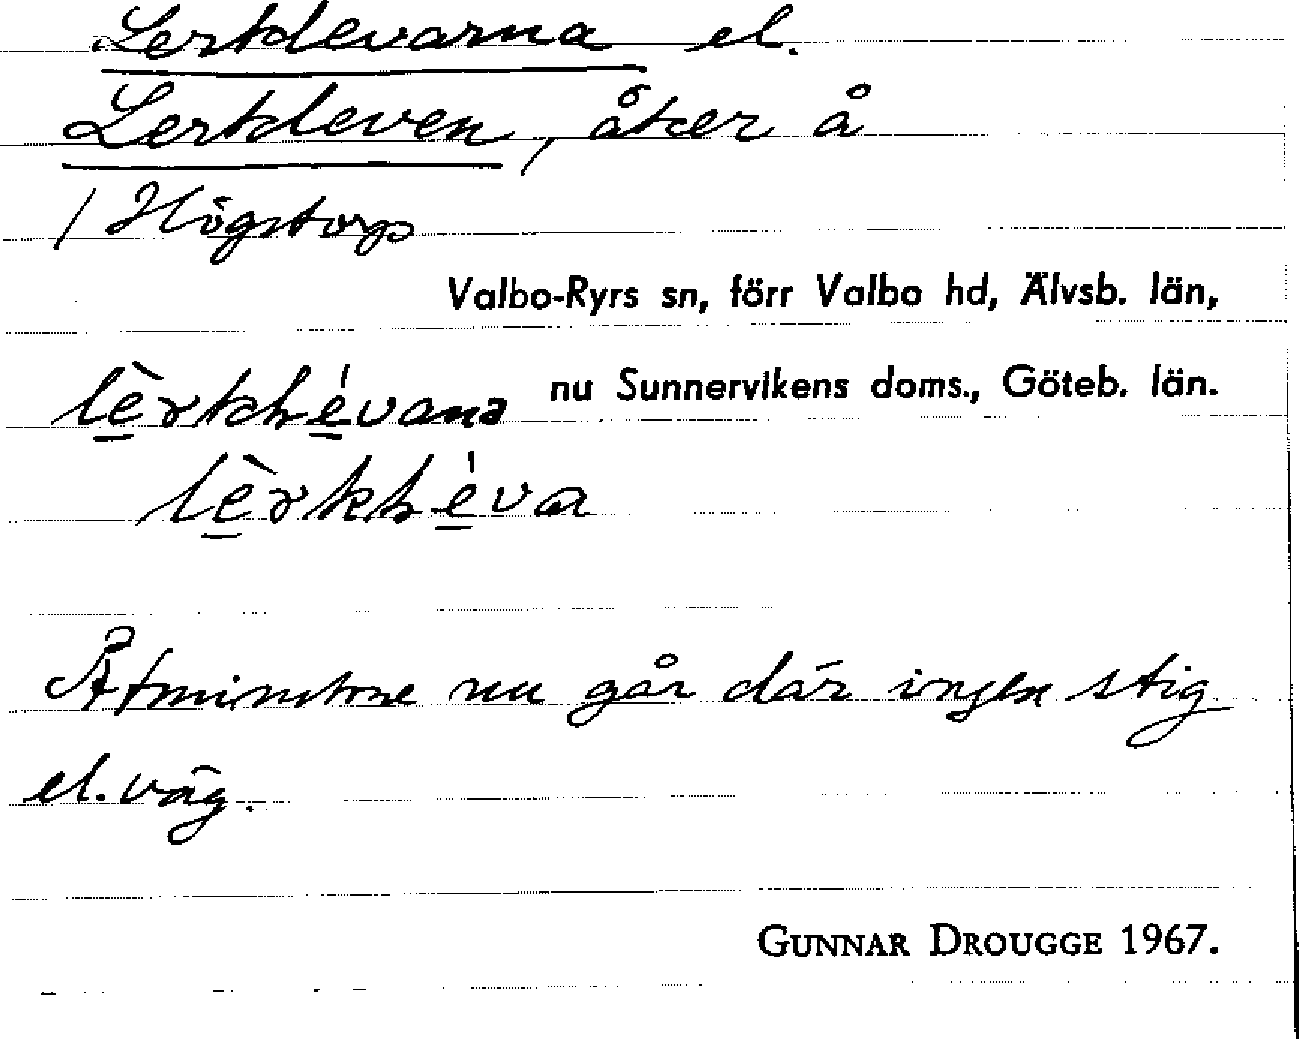 Lerklevarna el.
Lerkleven, åker å
/ Högstorp
Valbo-Ryrs sn, förr Valbo hd, Älvsb. län,
nu Sunnervikens doms., Göteb. län.
Åtminstone nu går där ingen stig
el. väg.
GUNNAR DROUGGE 1967.